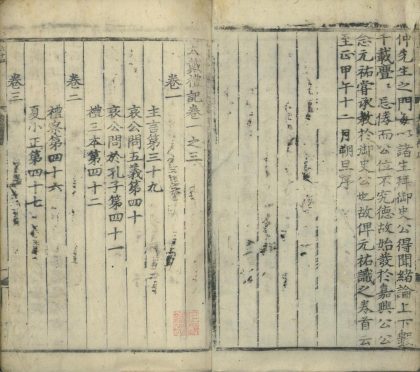 仲先生之門每諸生拜御史公得聞緒論上下數
千載亹忘倦而公位不究德故始發於嘉興公公
念元祐嘗承教於御史公也故俾元祐識之卷首云
至正甲午十二月朔旦序
大戴禮記卷一之三
卷一
主言第三十九
哀公問五義第四十
哀公問於孔子第四十一
禮三本第四十二
卷二
禮察第四十六
夏小正第四十七
卷三